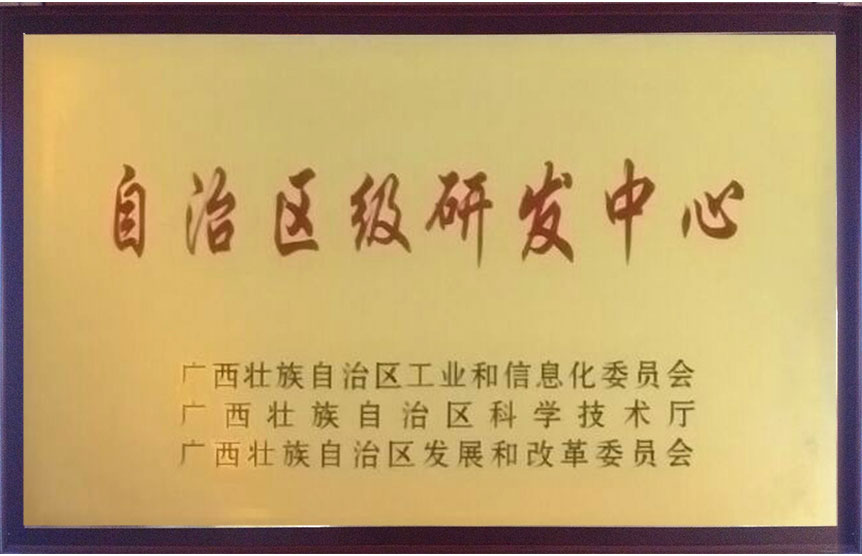 自治区级研发中心
广西壮族自治区工业和信息化委员会
广西壮族自治区科学技术厅
广西壮族自治区发展和改革委员会